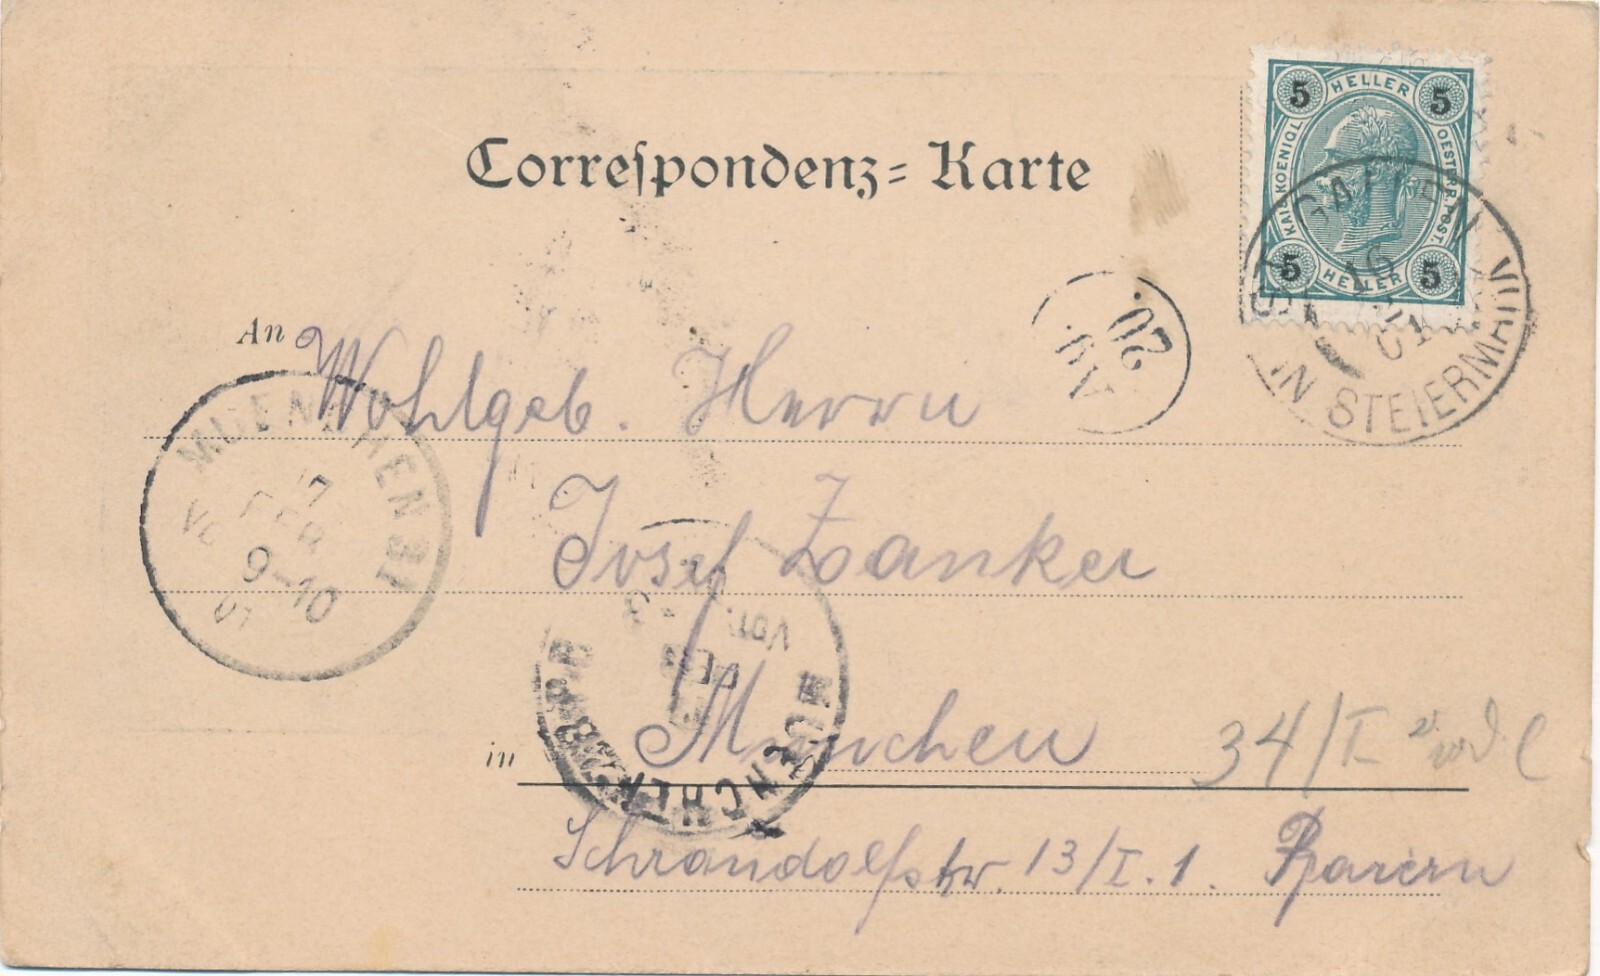 Correspondenz=Karte
5 HELLER 5
KAIS. KOENIGL. OESTERR. POST.
5 HELLER 5
ST. GALLEN
16
01
IN STEIERMARK
20.
A9.
An Wohlgeb. Herrn
MUENCHEN 31
17
FEB
9-10
01
Josef Zanker
MUENCHEN
VOR.
FEB
in München 34/I
Schraudolfstr. 13/I. 1. Bayern